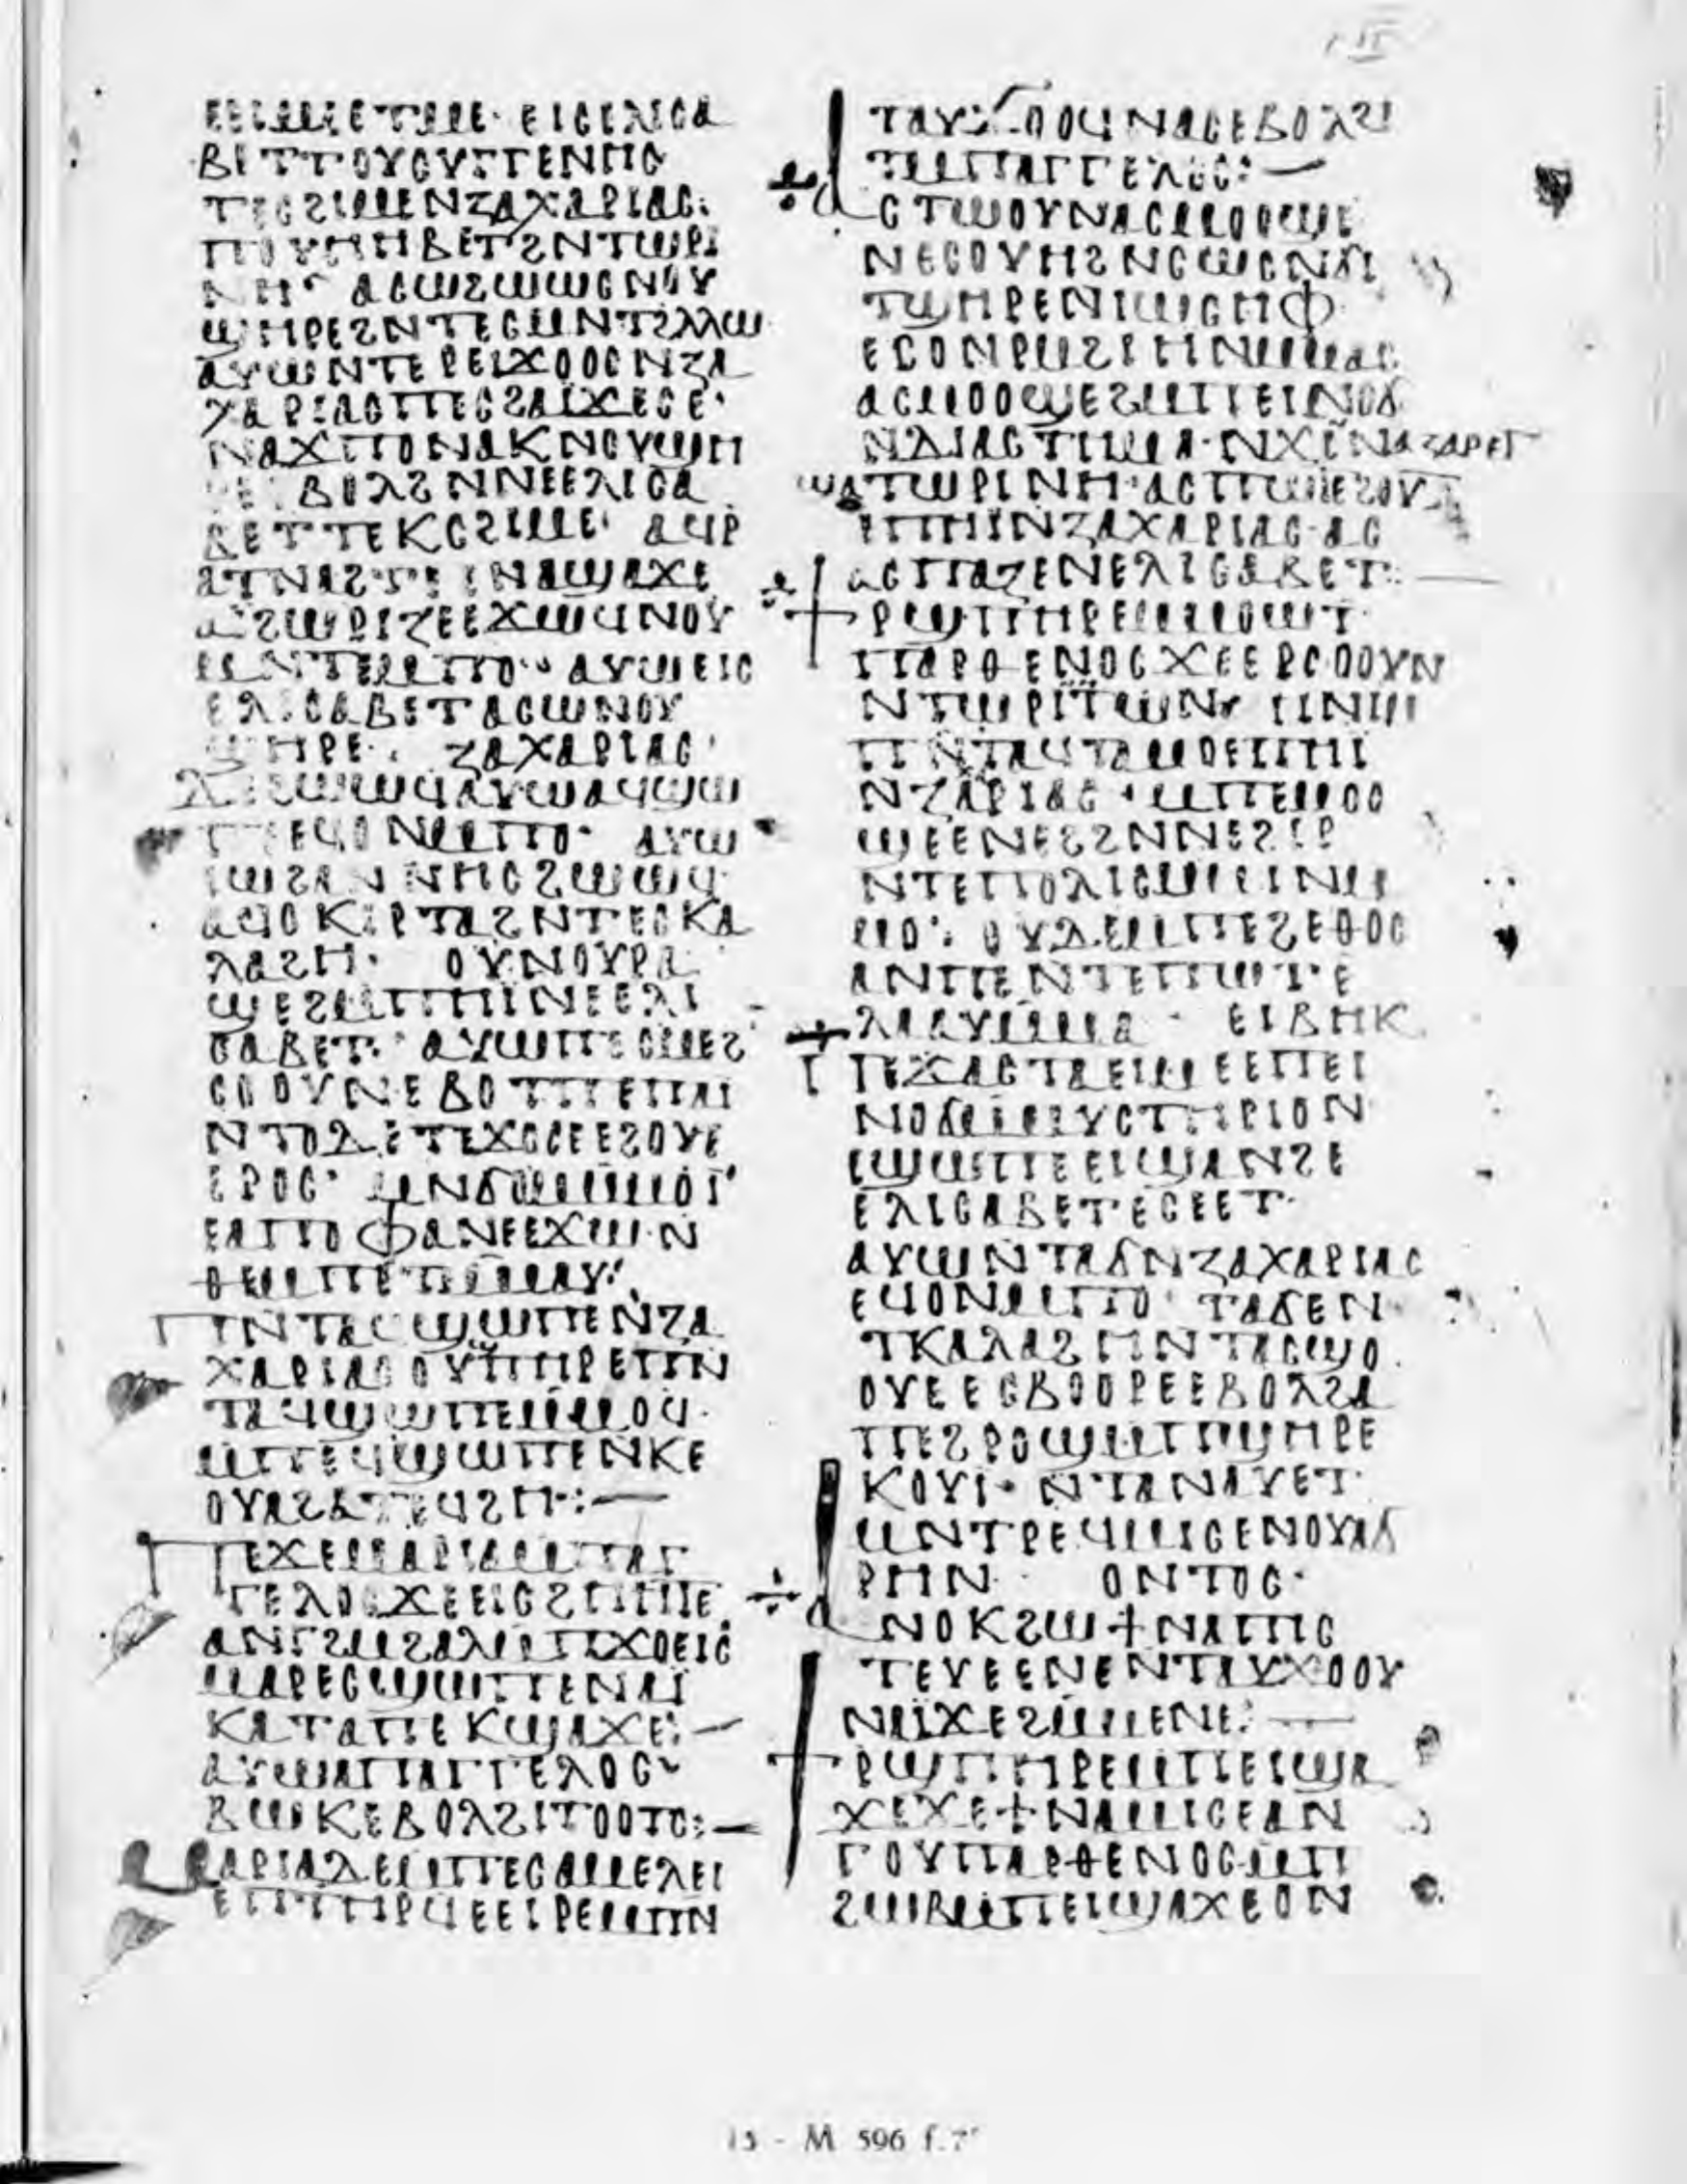 ⲉⲉⲓⲙⲉⲉⲧⲙⲉ· ⲉⲓⲥⲉⲗⲓⲥⲁ
ⲃⲉⲧⲧⲟⲩⲥⲩⲅⲅⲉⲛⲏⲥ
ⲧⲉⲥϩⲓⲙⲉⲛⲍⲁⲭⲁⲣⲓⲁⲥ:
ⲡⲟⲩⲏⲏⲃⲉⲧϩⲛⲧⲱⲣⲓ
ⲛⲏ· ⲁⲥⲱϩⲱⲱⲥⲛⲟⲩ
ϣⲏⲣⲉϩⲛⲧⲉⲥⲙⲛⲧϩⲗⲗⲱ
ⲁⲩⲱⲛⲧⲉⲣⲉⲓϫⲟⲟⲥⲛⲍⲁ
ⲭⲁⲣⲓⲁⲥⲡⲉⲥϩⲁⲓ̈ϫⲉⲥⲉ·
ⲛⲁϫⲡⲟⲛⲁⲕⲛⲟⲩϣⲏ
ⲃⲟⲗϩⲛⲛⲉⲉⲗⲓⲥⲁ
ⲃⲉⲧⲧⲉⲕⲥϩⲓⲙⲉ· ⲁϥⲣ
ⲁⲧⲛⲁϩⲧⲉⲉⲛⲁϣⲁϫⲉ
ⲁⲓϩⲱⲣⲓⲍⲉⲉϫⲱϥⲛⲟⲩ
ⲙⲛⲧⲉⲙⲡⲟ· ⲁⲩⲱⲉⲓⲥ
ⲉⲗⲓⲥⲁⲃⲉⲧⲁⲥⲱⲛⲟⲩ
ϣⲏⲣⲉ· ⲍⲁⲭⲁⲣⲓⲁⲥ·
ⲇⲉϩⲱⲱϥⲁⲩⲱⲁϥϣⲱ
ⲡⲉⲉϥⲟⲛⲙⲡⲟ· ⲁⲩⲱ
ⲓⲱϩⲁⲛⲛⲏⲥϩⲱⲱϥ
ⲁϥⲥⲕⲓⲣⲧⲁϩⲛⲧⲉⲥⲕⲁ
ⲗⲁϩⲏ· ⲟⲩⲛⲟⲩⲣⲁ
ϣⲉϩⲙⲡⲏⲓ̈ⲛⲉⲉⲗⲓ
ⲥⲁⲃⲉⲧ· ⲁⲩⲱⲡⲉⲥⲙⲉϩ
ⲥⲟⲟⲩⲛⲉⲃⲟⲧⲡⲉⲡⲁⲓ
ⲛⲧⲟⲇⲉⲧⲉϫⲟⲥⲉⲉϩⲟⲩⲉ
ⲉⲣⲟⲥ· ⲙⲛϭⲟⲙⲙⲙⲟⲓ̈
ⲉⲁⲡⲟⲫⲁⲛⲉⲉϫⲱⲛ
ⲑⲉⲙⲡⲉⲧⲙⲙⲁⲩ·
ⲡⲛⲧⲁⲥϣⲱⲡⲉⲛⲍⲁ
ⲭⲁⲣⲓⲁⲥⲟⲩϣⲡⲏⲣⲉⲡⲛ
ⲧⲁϥϣⲱⲡⲉⲙⲙⲟϥ·
ⲙⲡⲉϥϣⲱⲡⲉⲛⲕⲉ
ⲟⲩⲁϩⲁⲧⲉϥϩⲏ:—
ⲡⲉϫⲉⲙⲁⲣⲓⲁⲙⲡⲁⲅ
ⲅⲉⲗⲟⲥϫⲉⲉⲓⲥϩⲏⲏⲧⲉ
ⲁⲛⲅϩⲙϩⲁⲗⲙⲡϫⲟⲉⲓⲥ
ⲙⲁⲣⲉⲥϣⲱⲡⲉⲛⲁⲓ̈
ⲕⲁⲧⲁⲡⲉⲕϣⲁϫⲉ:—
ⲁⲩⲱⲁⲡⲁⲅⲅⲉⲗⲟⲥ
ⲃⲱⲕⲉⲃⲟⲗϩⲓⲧⲟⲟⲧⲥ:—
ⲙⲁⲣⲓⲁⲇⲉⲙⲡⲉⲥⲁⲙⲉⲗⲉⲓ
ⲉⲡⲧⲏⲣϥⲉⲉⲓⲣⲉⲙⲡⲛ
ⲧⲁⲩϫⲟⲟϥⲛⲁⲥⲉⲃⲟⲗϩⲓ
ⲧⲙⲡⲁⲅⲅⲉⲗⲟⲥ:—
ⲁⲥⲧⲱⲟⲩⲛⲁⲥⲙⲟⲟϣⲉ
ⲛⲉⲥⲟⲩⲏϩⲛⲥⲱⲥⲛϭⲓ
ⲧϣⲏⲣⲉⲛⲓⲱⲥⲏⲫ
ⲉⲥⲟⲛⲣⲙϩⲣⲏⲓⲛⲙⲙⲁⲥ
ⲁⲥⲙⲟⲟϣⲉϩⲙⲡⲉⲓⲛⲟϭ
ⲛⲇⲓⲁⲥⲧⲏⲙⲁ·ⲛϫⲓⲛⲛⲁⲍⲁⲣⲉⲑ
ϣⲁⲧⲱⲣⲓⲛⲏ·ⲁⲥⲡⲱⲉϩⲟⲩⲛ
ⲉⲡⲏⲓ̈ⲛⲍⲁⲭⲁⲣⲓⲁⲥ·ⲁⲥ
ⲁⲥⲡⲁⲍⲉⲛⲉⲗⲓⲥⲁⲃⲉⲧ:—
ϯⲣϣⲡⲏⲣⲉⲙⲙⲟⲱⲧ·
ⲡⲁⲣⲑⲉⲛⲟⲥϫⲉⲉⲣⲥⲟⲟⲩⲛ
ⲛⲧⲱⲣⲓⲧⲱⲛ· ⲏⲛⲓⲙ
ⲡⲛⲧⲁϥⲧⲁⲙⲟⲉⲡⲏⲓ
ⲛⲍⲁⲣⲓⲁⲥ·ⲙⲡⲉⲙⲟⲟ
ϣⲉⲉⲛⲉϩϩⲛⲛⲉϩⲓⲣ
ⲛⲧⲉⲡⲟⲗⲓⲥⲙⲙⲓⲛⲙ
ⲙⲟ: ⲟⲩⲇⲉⲙⲡⲉϩⲉⲑⲟⲥ
ⲁⲛⲡⲉⲛⲧⲉⲡⲱⲧⲉ
ⲗⲁⲁⲩⲙⲙⲁ· ⲉⲓⲃⲏⲕ
ⲡⲉϫⲁⲥⲧⲁⲉⲓⲙⲉⲉⲡⲉⲓ
ⲛⲟϭⲙⲙⲩⲥⲧⲏⲣⲓⲟⲛ
ⲉϣⲱⲡⲉⲉⲓϣⲁⲛϩⲉ
ⲉⲗⲓⲥⲁⲃⲉⲧⲉⲥⲉⲉⲧ·
ⲁⲩⲱⲛⲧⲁϭⲛⲍⲁⲭⲁⲣⲓⲁⲥ
ⲉϥⲟⲛⲙⲡⲟ· ⲧⲁϭⲉⲛ
ⲧⲕⲁⲗⲁϩⲏⲛⲧⲁⲥϣⲟ
ⲟⲩⲉⲉⲥⲃⲟⲟⲣⲉⲉⲃⲟⲗϩⲁ
ⲡⲉϩⲣⲟϣⲙⲡϣⲏⲣⲉ
ⲕⲟⲩⲓ· ⲛⲧⲁⲛⲁⲩⲉⲧ
ⲙⲛⲧⲣⲉϥⲙⲓⲥⲉⲛⲟⲩⲁϭ
ⲣⲏⲛ ⲟⲛⲧⲟⲥ·
ⲁⲛⲟⲕϩⲱϯⲛⲁⲡⲓⲥ
ⲧⲉⲩⲉⲉⲛⲉⲛⲧⲁⲩϫⲟⲟⲩ
ⲛⲁⲓ̈ϫⲉϩⲙⲙⲉⲛⲉ:—
ϯⲣϣⲡⲏⲣⲉⲙⲡⲉⲓϣⲁ
ϫⲉϫⲉϯⲛⲁⲙⲓⲥⲉⲁⲛ
ⲅⲟⲩⲡⲁⲣⲑⲉⲛⲟⲥⲙⲡ
ϩⲱⲃⲙⲡⲉⲓϣⲁϫⲉⲟⲛ
13 - M 596 f.7ʳ